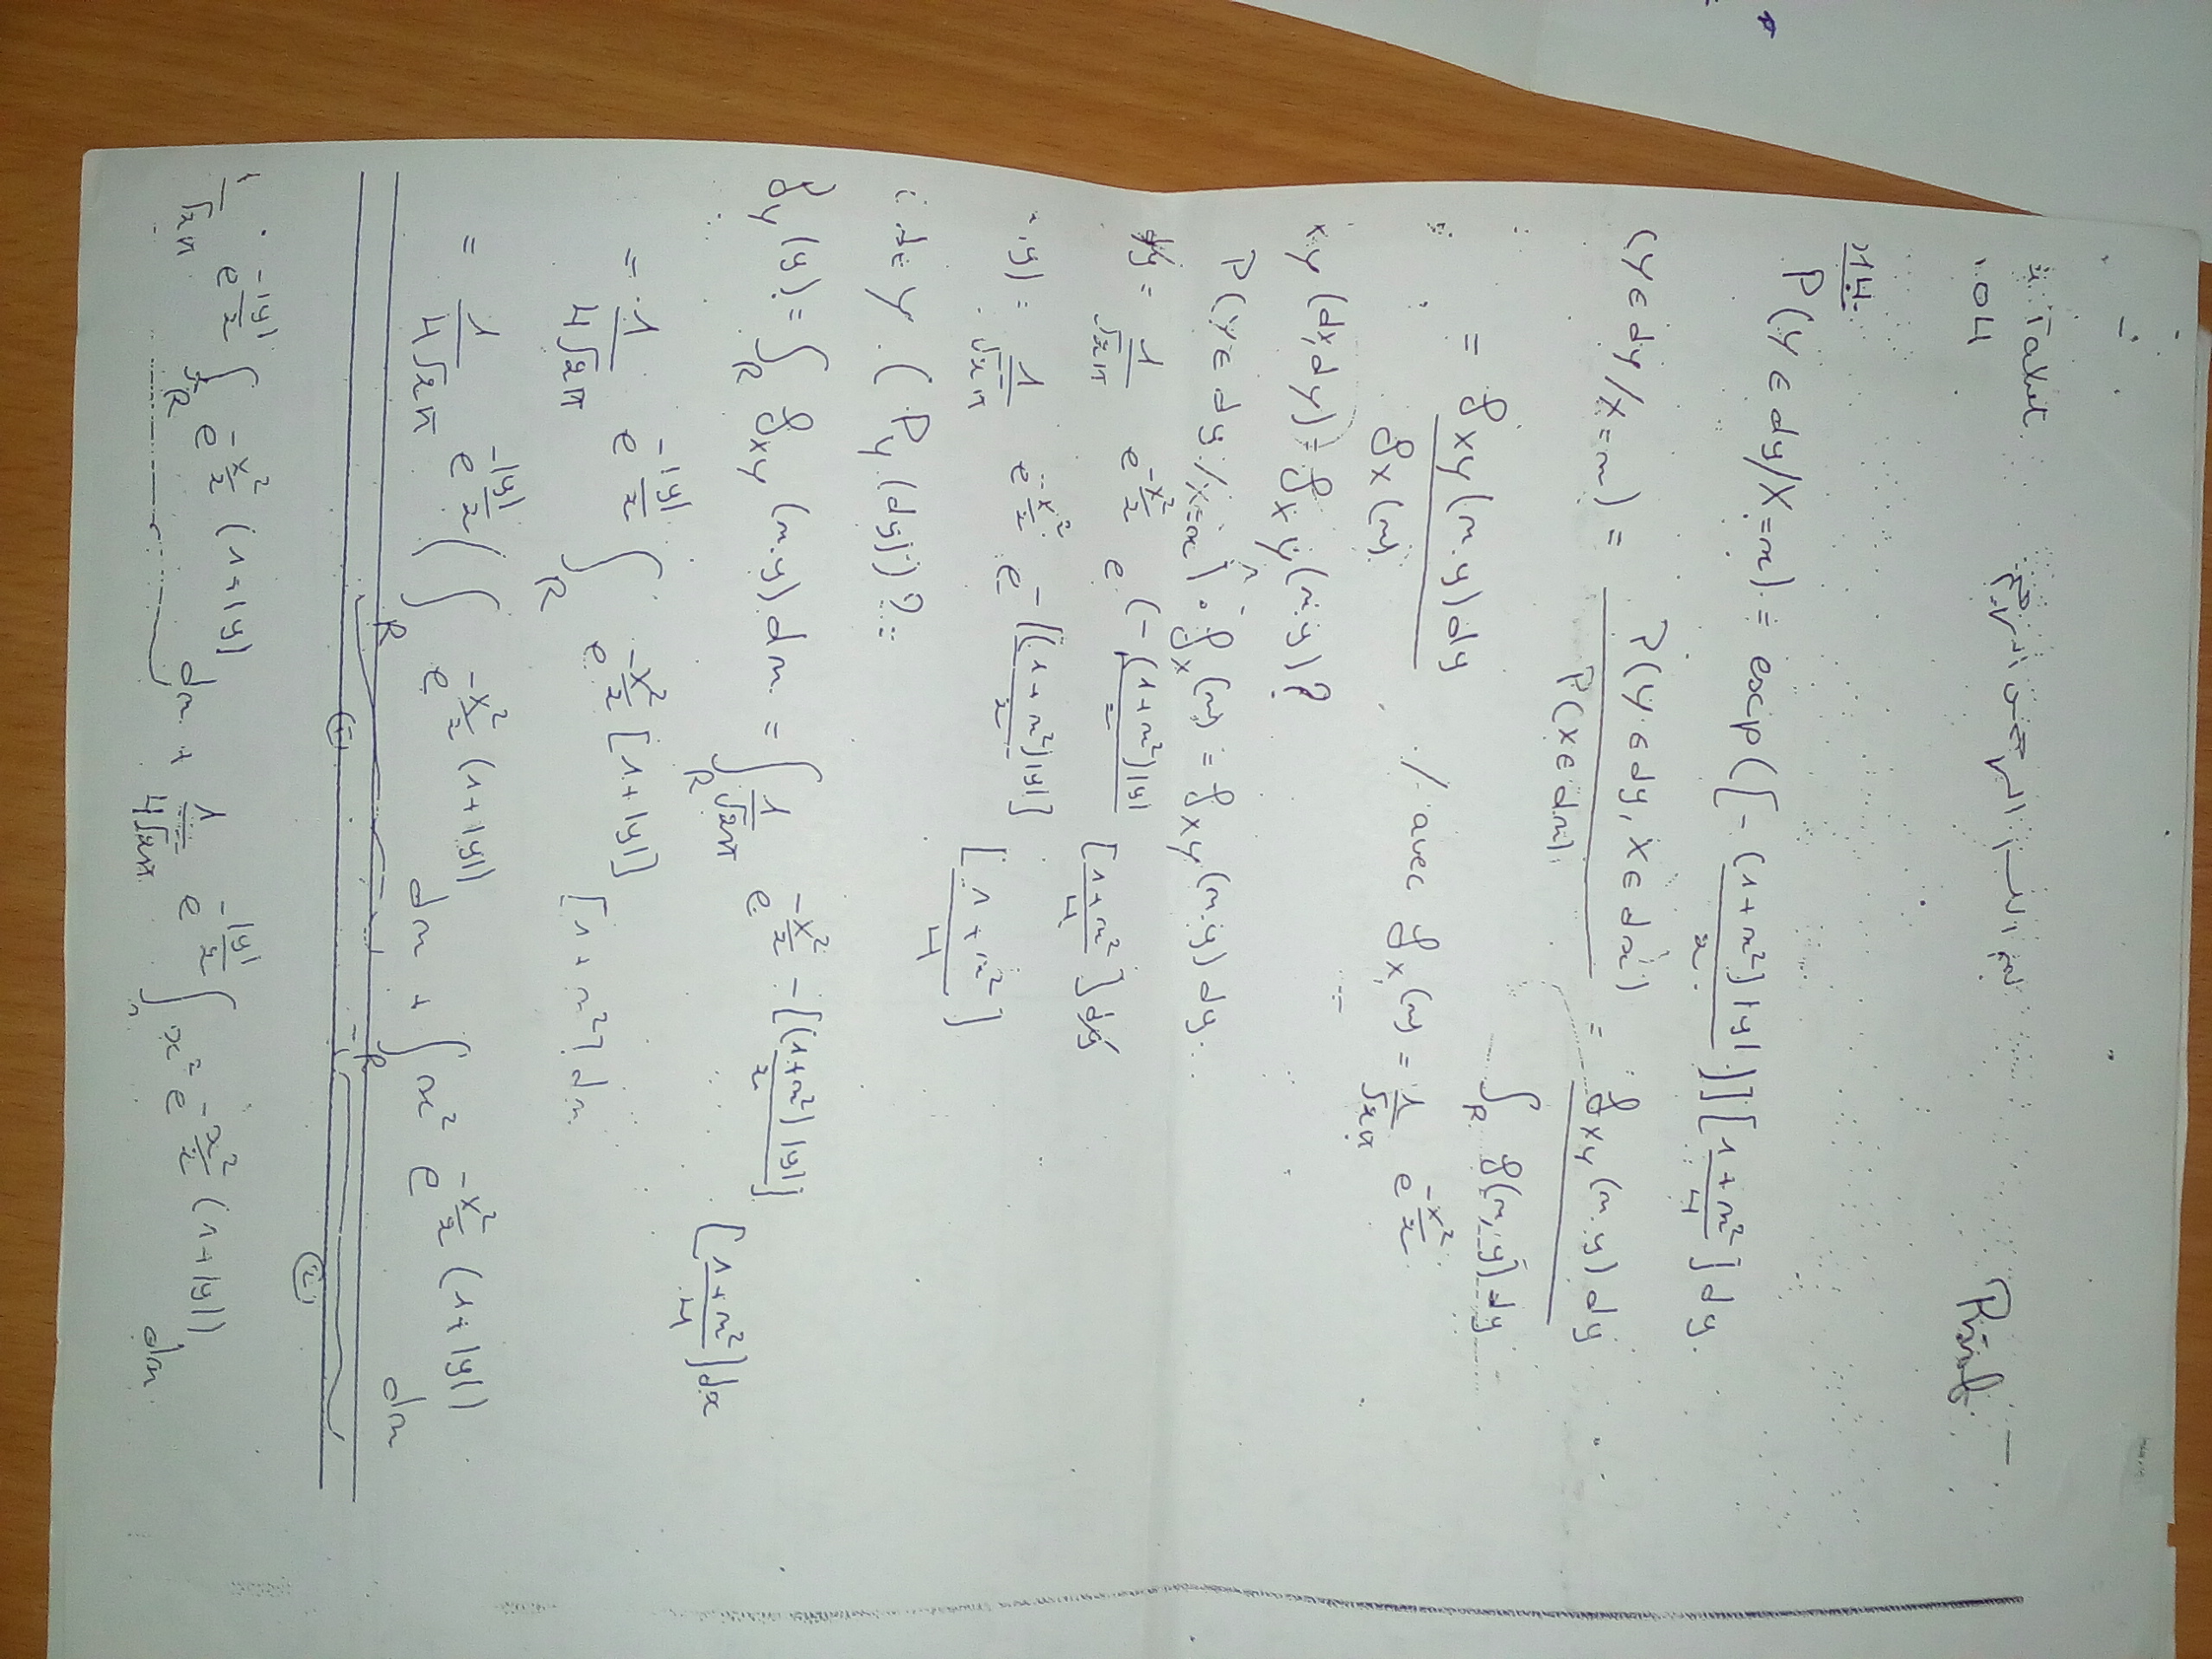 Taket
بسم الله الرحمن الرحيم
04
14.
P(Y ∈ dy/X=x) = exp([-(1+x²)|y|/2)][1+x²/4] dy.
(Y ∈ dy/X=x) = P(Y ∈ dy, X ∈ dx)/P(X ∈ dx) = f_XY(x,y) dy/∫_R f(x,y) dy
= f_XY(x,y) dy/f_X(x) / avec f_X(x) = 1/√2π e^(-x²/2)
XY (dx,dy) = f_XY(x,y)?
P(Y ∈ dy/X=x) · f_X(x) = f_XY(x,y) dy.
dy = 1/√2π e^(-x²/2) e^(-(1+x²)|y|/2) [1+x²/4] dy
,y) = 1/√2π e^(-x²/2) e^(-[(1+x²)|y|]/2) [1+x²/4]
de Y (P_Y(dy))?=
f_Y(y) = ∫_R f_XY(x,y) dx = ∫_R 1/√2π e^(-x²/2 - [(1+x²)|y|]/2) [1+x²/4] dx
= 1/4√2π e^(-|y|/2) ∫_R e^(-x²/2 [1+|y|]) [1+x²] dx
= 1/4√2π e^(-|y|/2) (∫_R e^(-x²/2 (1+|y|)) dx + ∫_R x² e^(-x²/2 (1+|y|)) dx
① ②
√2π e^(-|y|/2) ∫_R e^(-x²/2 (1+|y|) dx + 1/4√2π e^(-|y|/2) ∫ x² e^(-x²/2 (1+|y|)) dx